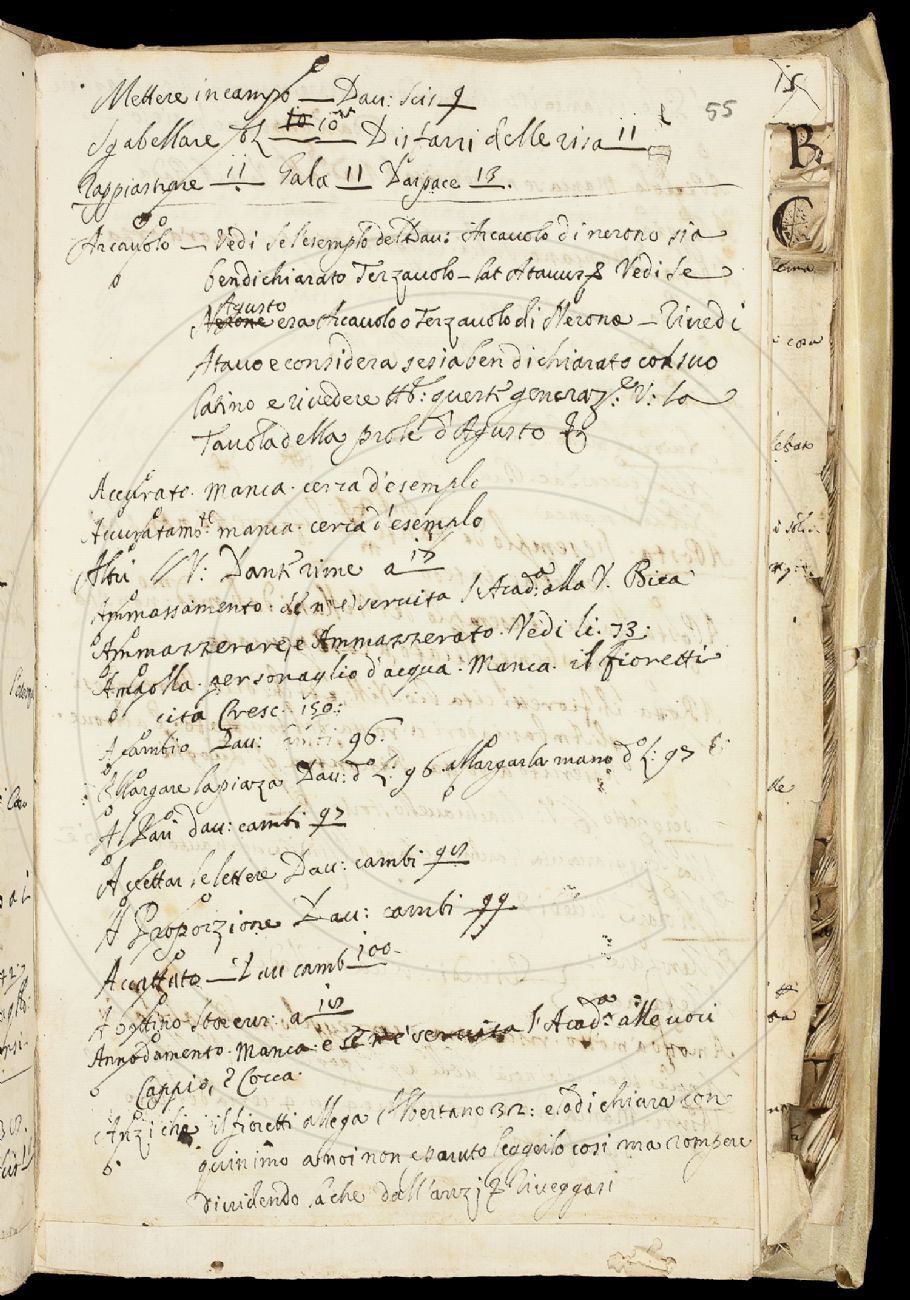 15
55
Mettere in campo — Dav: Scis 9
Sgabellare 10 10 Disfarsi delle risa 11
Rappiastrare 11 Gala 11 Dar pace 13.
Arcavolo — Vedi se l'esemplo del Dav: Arcavolo di nerono sia
ben dichiarato Terzavolo — lat Atavus Vedi se
Agusto
Nerone era Arcavolo o Terzavolo di Nerone — Rivedi
Atavo e considera se sia ben dichiarato col suo
latino e rivedere queste V: la
Tavola della prole d'Agusto
Accurato. manca. cerca d'esemplo
Accuratamte. manca. cerca d'esemplo
Altri V: Dante rime a
Ammassamento: se n'è servita l'Acada alla V. Bica
Ammazzerare, e Ammazzerato. Vedi li. 73:
Ampolla. per sonaglio d'acqua. Manca. il fioretti
cita Cresc. 150:
A cambio Dav: cambi 96.
Allargare la piazza Dav: do l: 96 Allargar la mano do l: 97
Al Pari dav: cambi 97
Accettar le lettere Dav: cambi 98
A Proporzione Dav: cambi 99
Accattato — Dav camb 100
A opilino Stor eur: a 18
Annodamento. Manca: e se n'è servita l'Acada alle voci
Cappio, e Cocca.
Anzi che il fioretti allega Albertano 32: e lo dichiara con
quinimo a noi non è paruto leggerlo così ma rompere
dividendo che dall'anzi
B
C